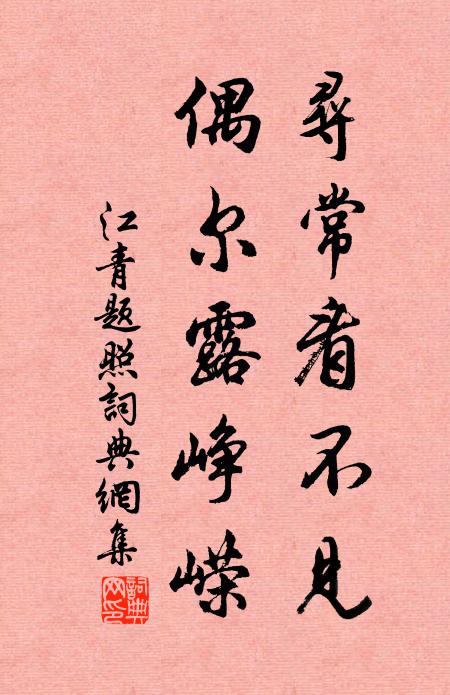 尋常看不見
偶尔露峥嵘
江青题照詞典網集
詞典网印